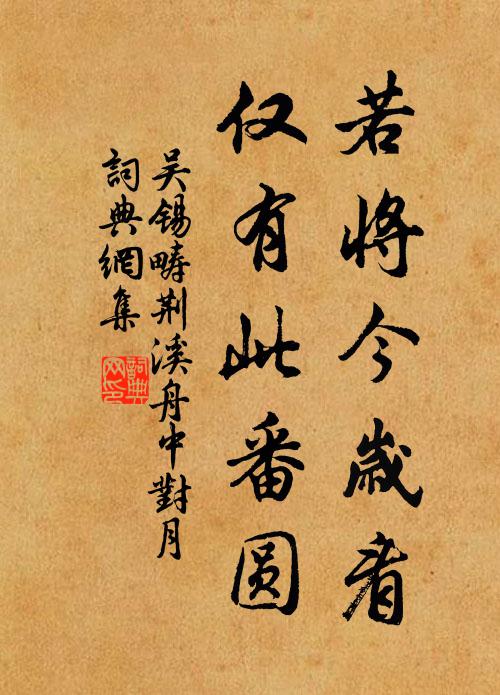 若将今歲看
仅有此番圆
吴锡畴荆溪舟中對月
詞典網集
詞典網印